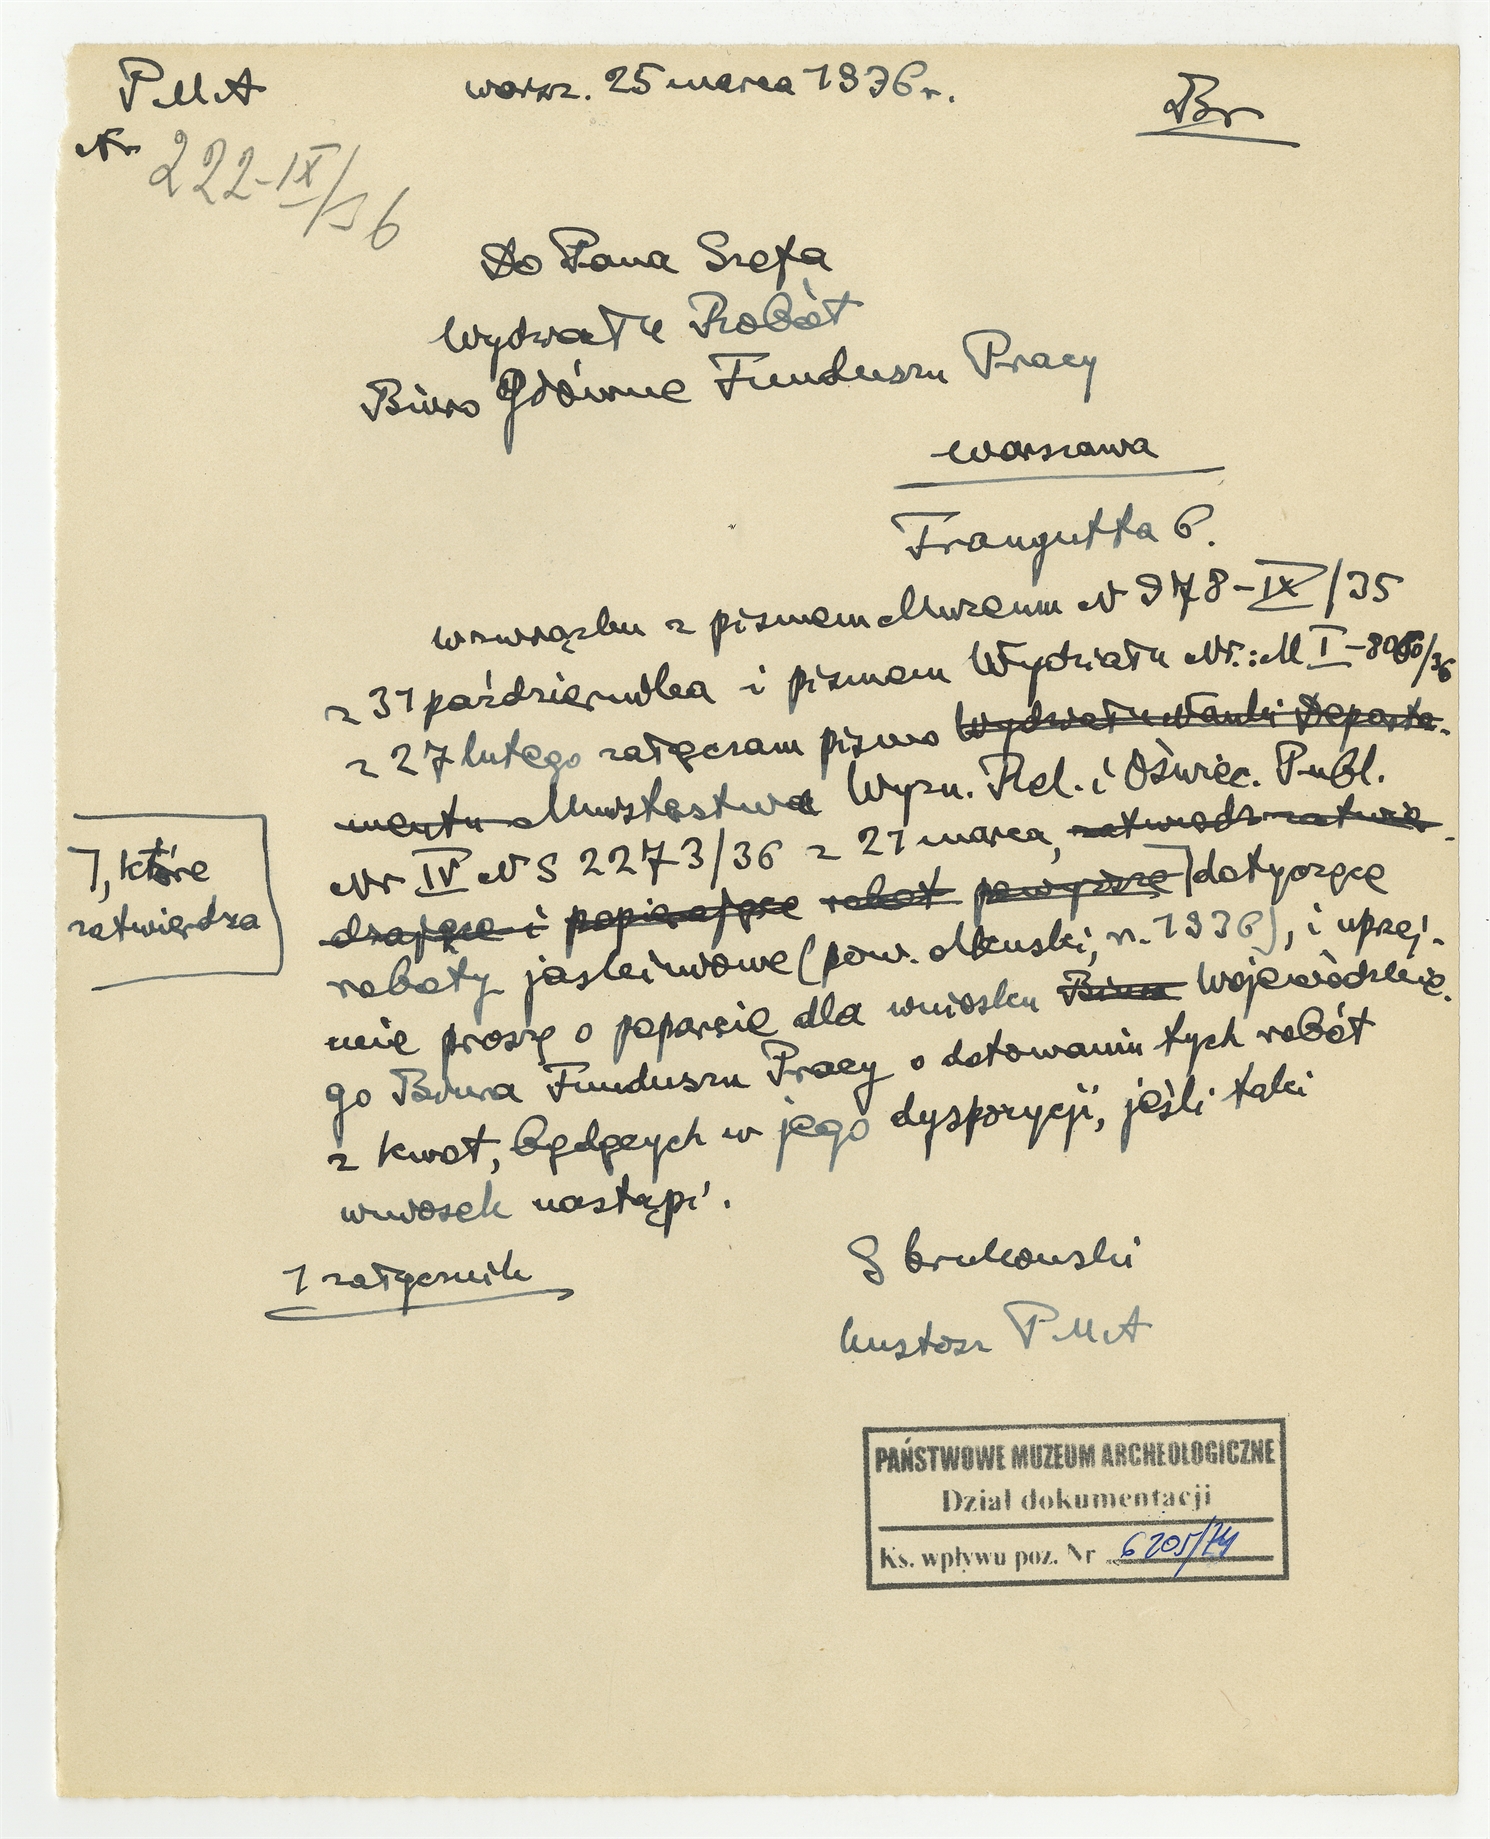 PMA
warsz. 25 marca 1936 r.
Br
Nr 222-IX/36
Do Pana Szefa
Wydziału Robót
Biuro Główne Funduszu Pracy
Warszawa
Traugutta 6.
W związku z pismem Muzeum N 978-IX/35
z 31 października i pismem Wydziału Nr.: M I-8060/36
z 27 lutego załączam pismo Wydziału Nauki Departa-
mentu Ministerstwa Wyzn. Rel. i Oświec. Publ.
Nr IV NS 2273/36 z 21 marca, zatwierdz zatwie-
dzające i popierające robot powyższe dotyczące
7, które
zatwierdza
roboty jaskiniowe (pow. olkuski, r. 1936), i uprzej-
mie proszę o poparcie dla wniosku Biura Wojewódzkie-
go Biura Funduszu Pracy o dotowaniu tych robót
z kwot, będących w jego dyspozycji, jeśli taki
wniosek nastąpi.
1 załącznik
S Krukowski
kustosz PMA
PAŃSTWOWE MUZEUM ARCHEOLOGICZNE
Dział dokumentacji
Ks. wpływu poz. Nr 6205/74